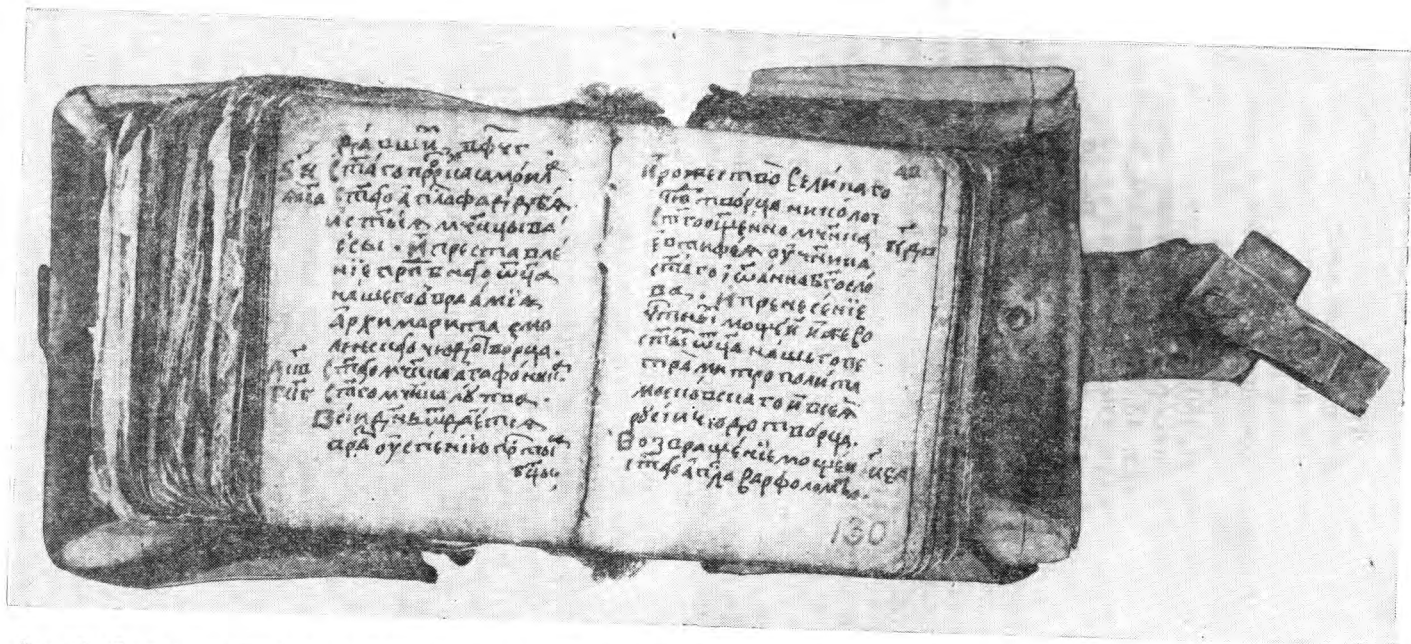 ст҃а́го прⷪ҇рка самои́л
ст҃аго ап҇ла фаддѣѧ.
и ст҃ы́ѧ мч҃ницы ва́
ссы. И҆ преставле
нїе прпⷣбнаго ѿц҃а
на́шего а҆враа́мїѧ
а҆рхимарита смо
ленскаго чюⷣтворца.
ст҃аго мч҃нка агафо́ника
ст҃го мч҃нка лу́ппа.
В си́и дн҃ь ѿдае́тсѧ
пра оу҆спе́нїю прⷭ҇ты
бц҃ы.
И҆ рожество вели́каго
чюⷣтво́рца нико́лы
ст҃го сщ҃енномч҃нка
евтифеѧ оу҆ч҃нка
ст҃а́го і҆ѡа́нна бг҃осло́
ва. И҆ пренесе́нїе
чтⷭ҇ны моще́й и҆́же во
ст҃ы ѿц҃а на́шего пе
тра́ митрополи́та
моско́вскаго и҆ всеѧ̀
русі́и чюдотво́рца.
Возвраще́нїе моще́й
ст҃аго ап҇ла варфоломѣѧ.
130